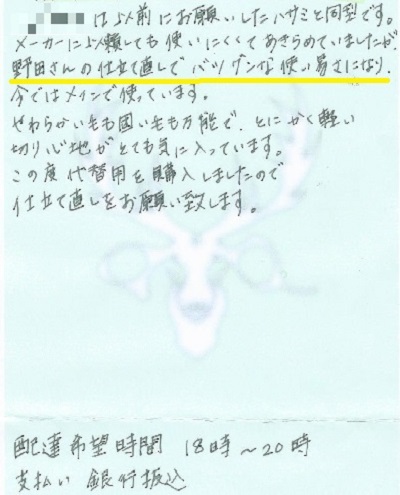 は以前にお願いしたハサミと同型です。
メーカーに依頼しても使いにくくてあきらめていましたが、
野田さんの仕立て直しでバツグンな使い易さになり、
今ではメインで使っています。
やわらかい毛も固い毛も万能で、とにかく軽い
切り心地がとても気に入っています。
この度代替用を購入しましたので
仕立て直しをお願い致します。
配達希望時間 18時～20時
支払い 銀行振込